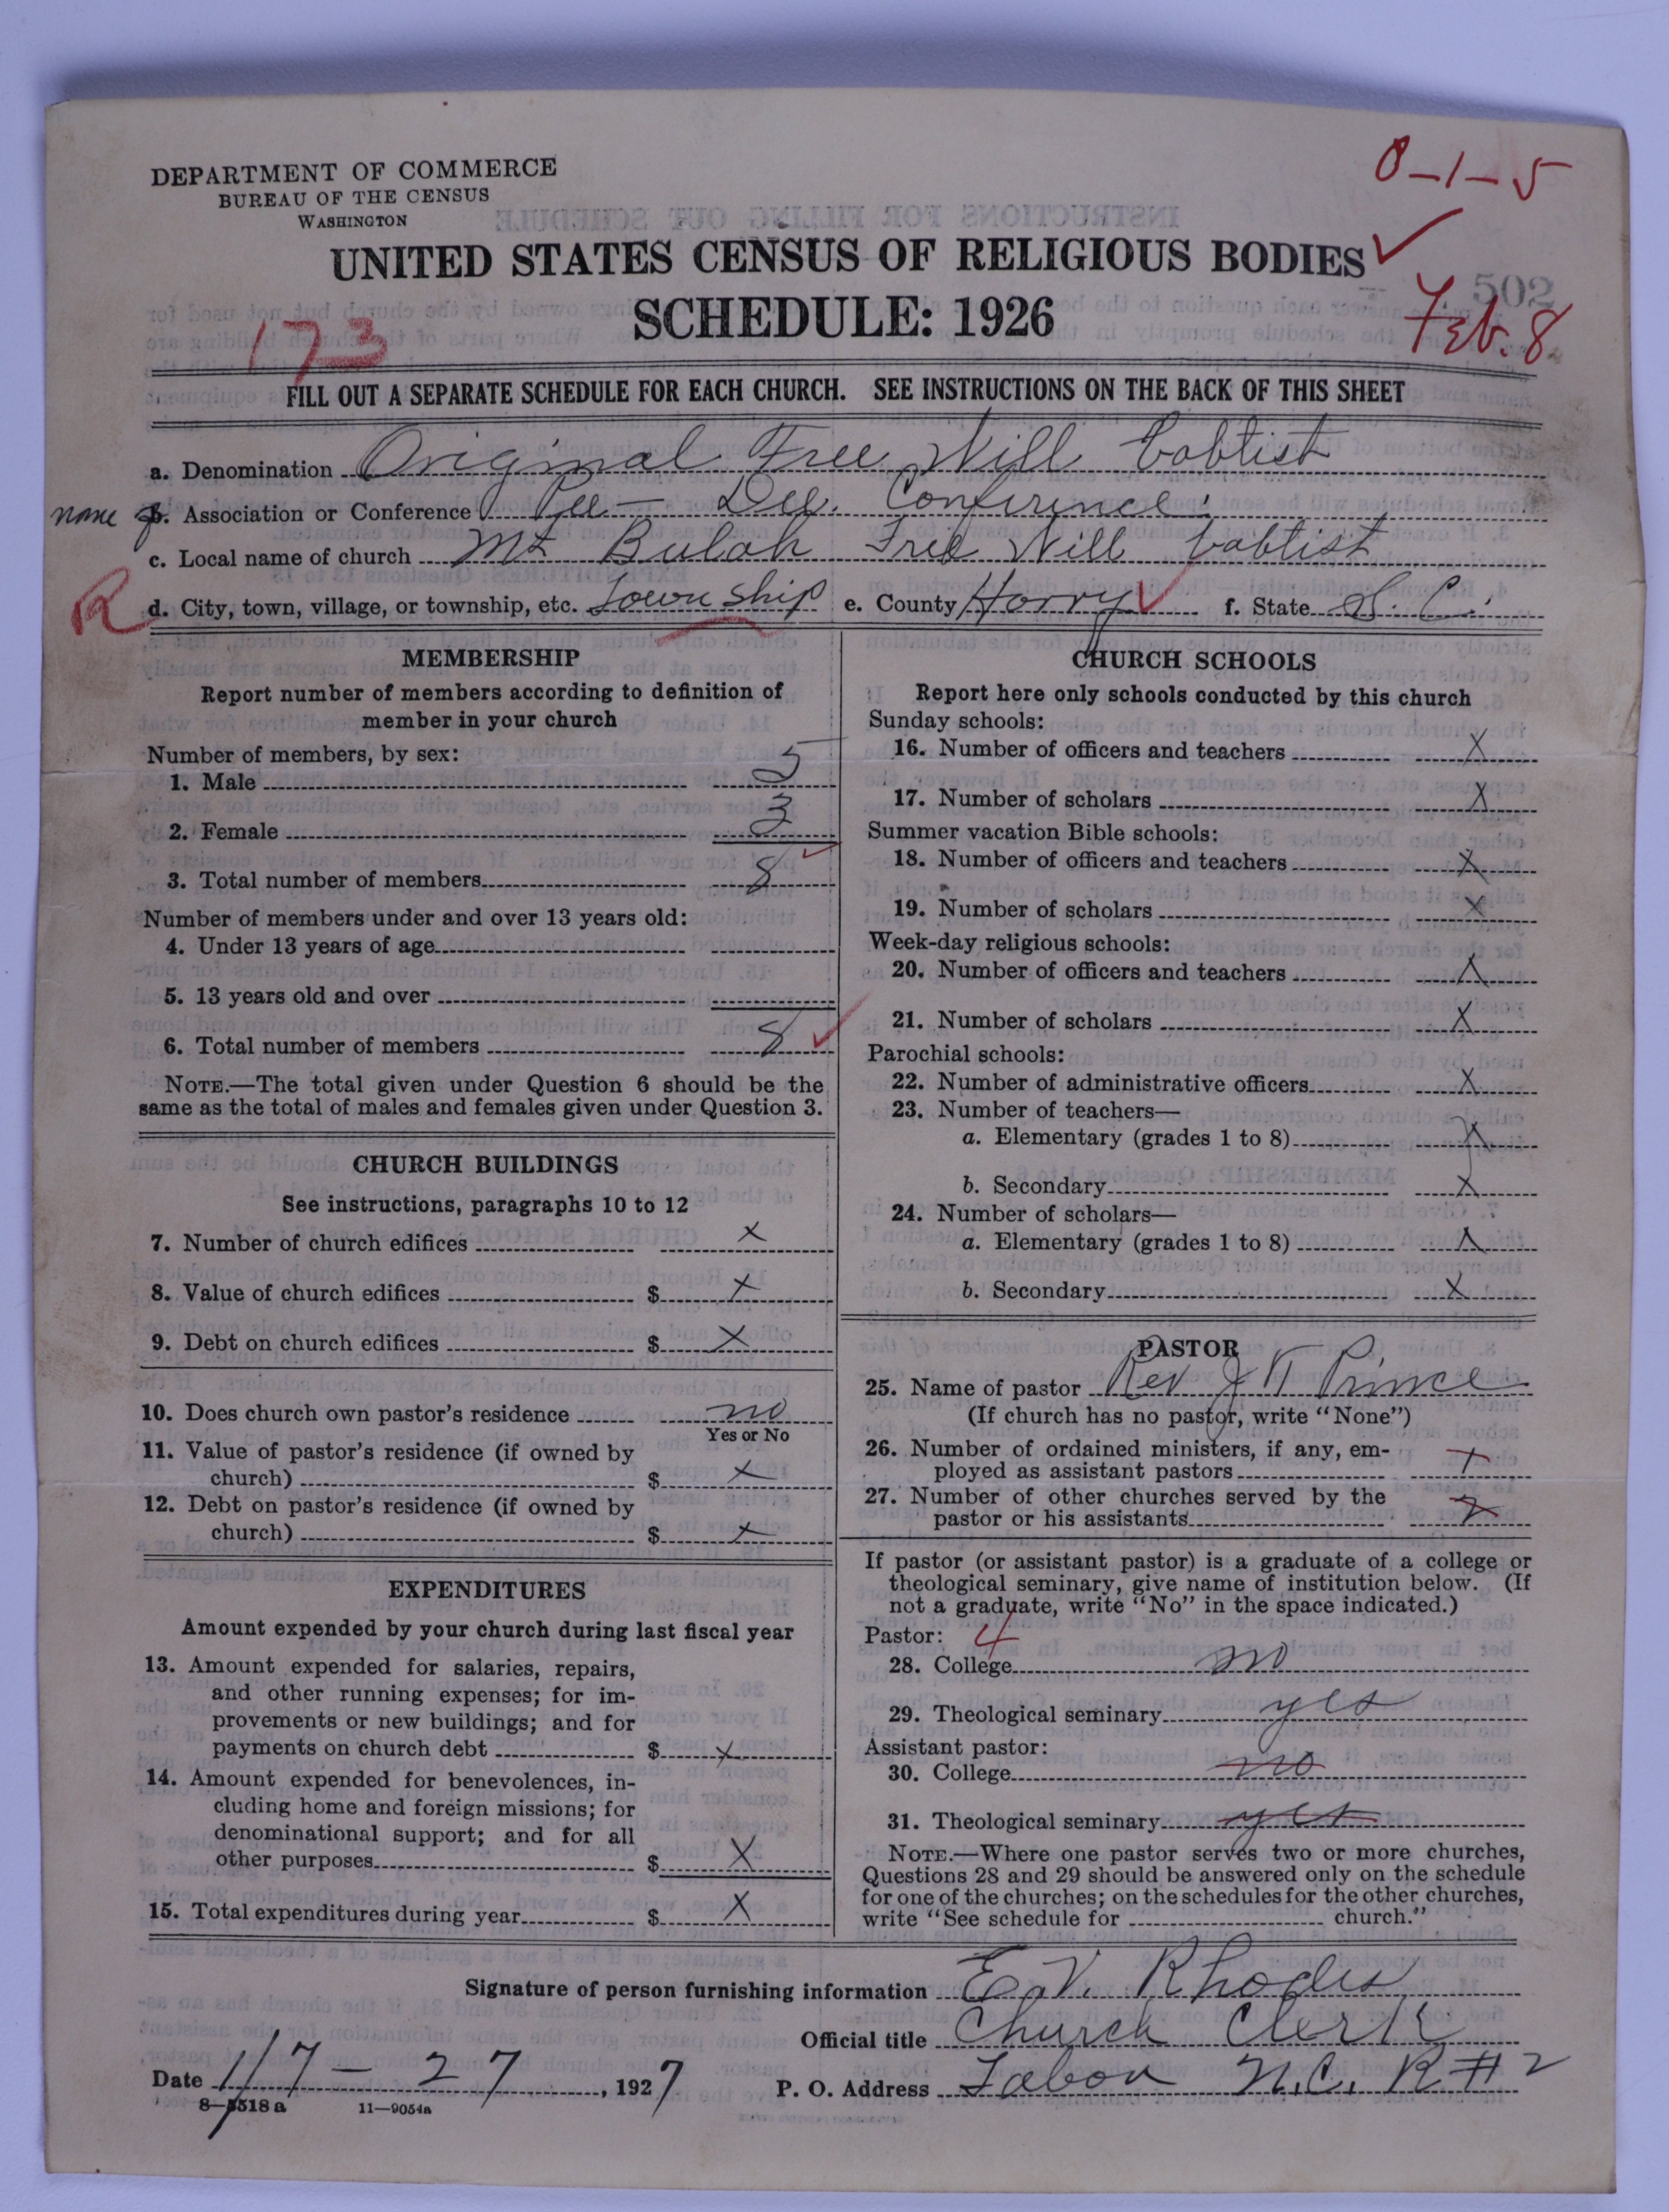 0-1-5
DEPARTMENT OF COMMERCE
BUREAU OF THE CENSUS
WASHINGTON
UNITED STATES CENSUS OF RELIGIOUS BODIES
502
SCHEDULE: 1926
173
Feb. 8
FILL OUT A SEPARATE SCHEDULE FOR EACH CHURCH. SEE INSTRUCTIONS ON THE BACK OF THIS SHEET
a. Denomination Original Free Will Babtist
none b. Association or Conference Pee-Dee. Conference.
c. Local name of church Mt Bulah Free Will babtist
R d. City, town, village, or township, etc. Township e. County Horry f. State S. C.
MEMBERSHIP
Report number of members according to definition of
member in your church
Number of members, by sex:
1. Male 5
2. Female 3
3. Total number of members 8
Number of members under and over 13 years old:
4. Under 13 years of age
5. 13 years old and over
6. Total number of members 8
NOTE.—The total given under Question 6 should be the
same as the total of males and females given under Question 3.
CHURCH BUILDINGS
See instructions, paragraphs 10 to 12
7. Number of church edifices X
8. Value of church edifices $ X
9. Debt on church edifices $ X
10. Does church own pastor's residence no
Yes or No
11. Value of pastor's residence (if owned by
church) $ X
12. Debt on pastor's residence (if owned by
church) $ X
EXPENDITURES
Amount expended by your church during last fiscal year
13. Amount expended for salaries, repairs,
and other running expenses; for im-
provements or new buildings; and for
payments on church debt $ X
14. Amount expended for benevolences, in-
cluding home and foreign missions; for
denominational support; and for all
other purposes $ X
15. Total expenditures during year $ X
CHURCH SCHOOLS
Report here only schools conducted by this church
Sunday schools:
16. Number of officers and teachers X
17. Number of scholars X
Summer vacation Bible schools:
18. Number of officers and teachers X
19. Number of scholars X
Week-day religious schools:
20. Number of officers and teachers X
21. Number of scholars X
Parochial schools:
22. Number of administrative officers X
23. Number of teachers—
a. Elementary (grades 1 to 8) X
b. Secondary X
24. Number of scholars—
a. Elementary (grades 1 to 8) X
b. Secondary X
PASTOR
25. Name of pastor Rev J W Prince
(If church has no pastor, write "None")
26. Number of ordained ministers, if any, em-
ployed as assistant pastors X
27. Number of other churches served by the
pastor or his assistants
If pastor (or assistant pastor) is a graduate of a college or
theological seminary, give name of institution below. (If
not a graduate, write "No" in the space indicated.)
Pastor: 4
28. College no
29. Theological seminary yes
Assistant pastor:
30. College no
31. Theological seminary yes
NOTE.—Where one pastor serves two or more churches,
Questions 28 and 29 should be answered only on the schedule
for one of the churches; on the schedules for the other churches,
write "See schedule for church."
Signature of person furnishing information E. V. Rhodes
Official title Church Clerk
Date 1/7-27, 1927 P. O. Address Tabor N.C. R #2
8-5518 a 11-9054a